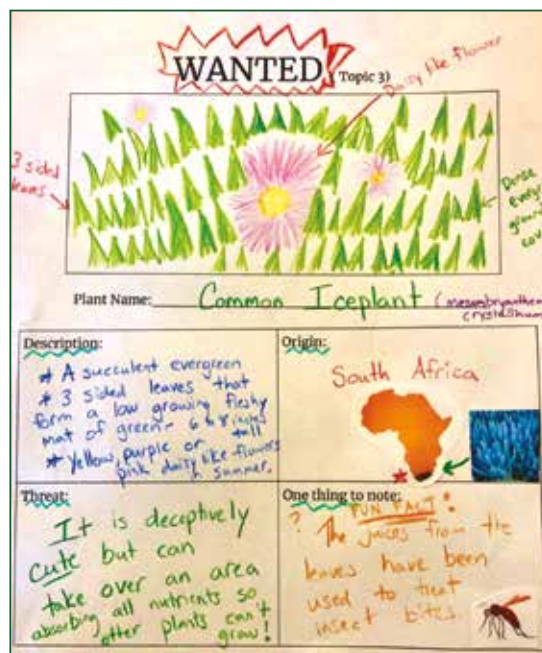 WANTED!
Topic 3)
Daisy like flower
3 sided
leaves
Dense
everg
ground
cove
Plant Name: Common Iceplant (mesembryanthem
crystallinum
Description:
* A succulent evergreen
* 3 sided leaves that
form a low growing fleshy
mat of green - 6 to 8 inches
tall
* Yellow, purple or
pink daisy like flowers
in summer.
Origin:
South Africa
Threat:
It is deceptively
cute but can
take over an area
absorbing all nutrients so
other plants can't
grow!
One thing to note:
? FUN FACT!
The juices from the
leaves have been
used to treat
insect bites